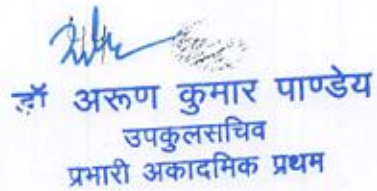 डॉ अरूण कुमार पाण्डेय
उपकुलसचिव
प्रभारी अकादमिक प्रथम